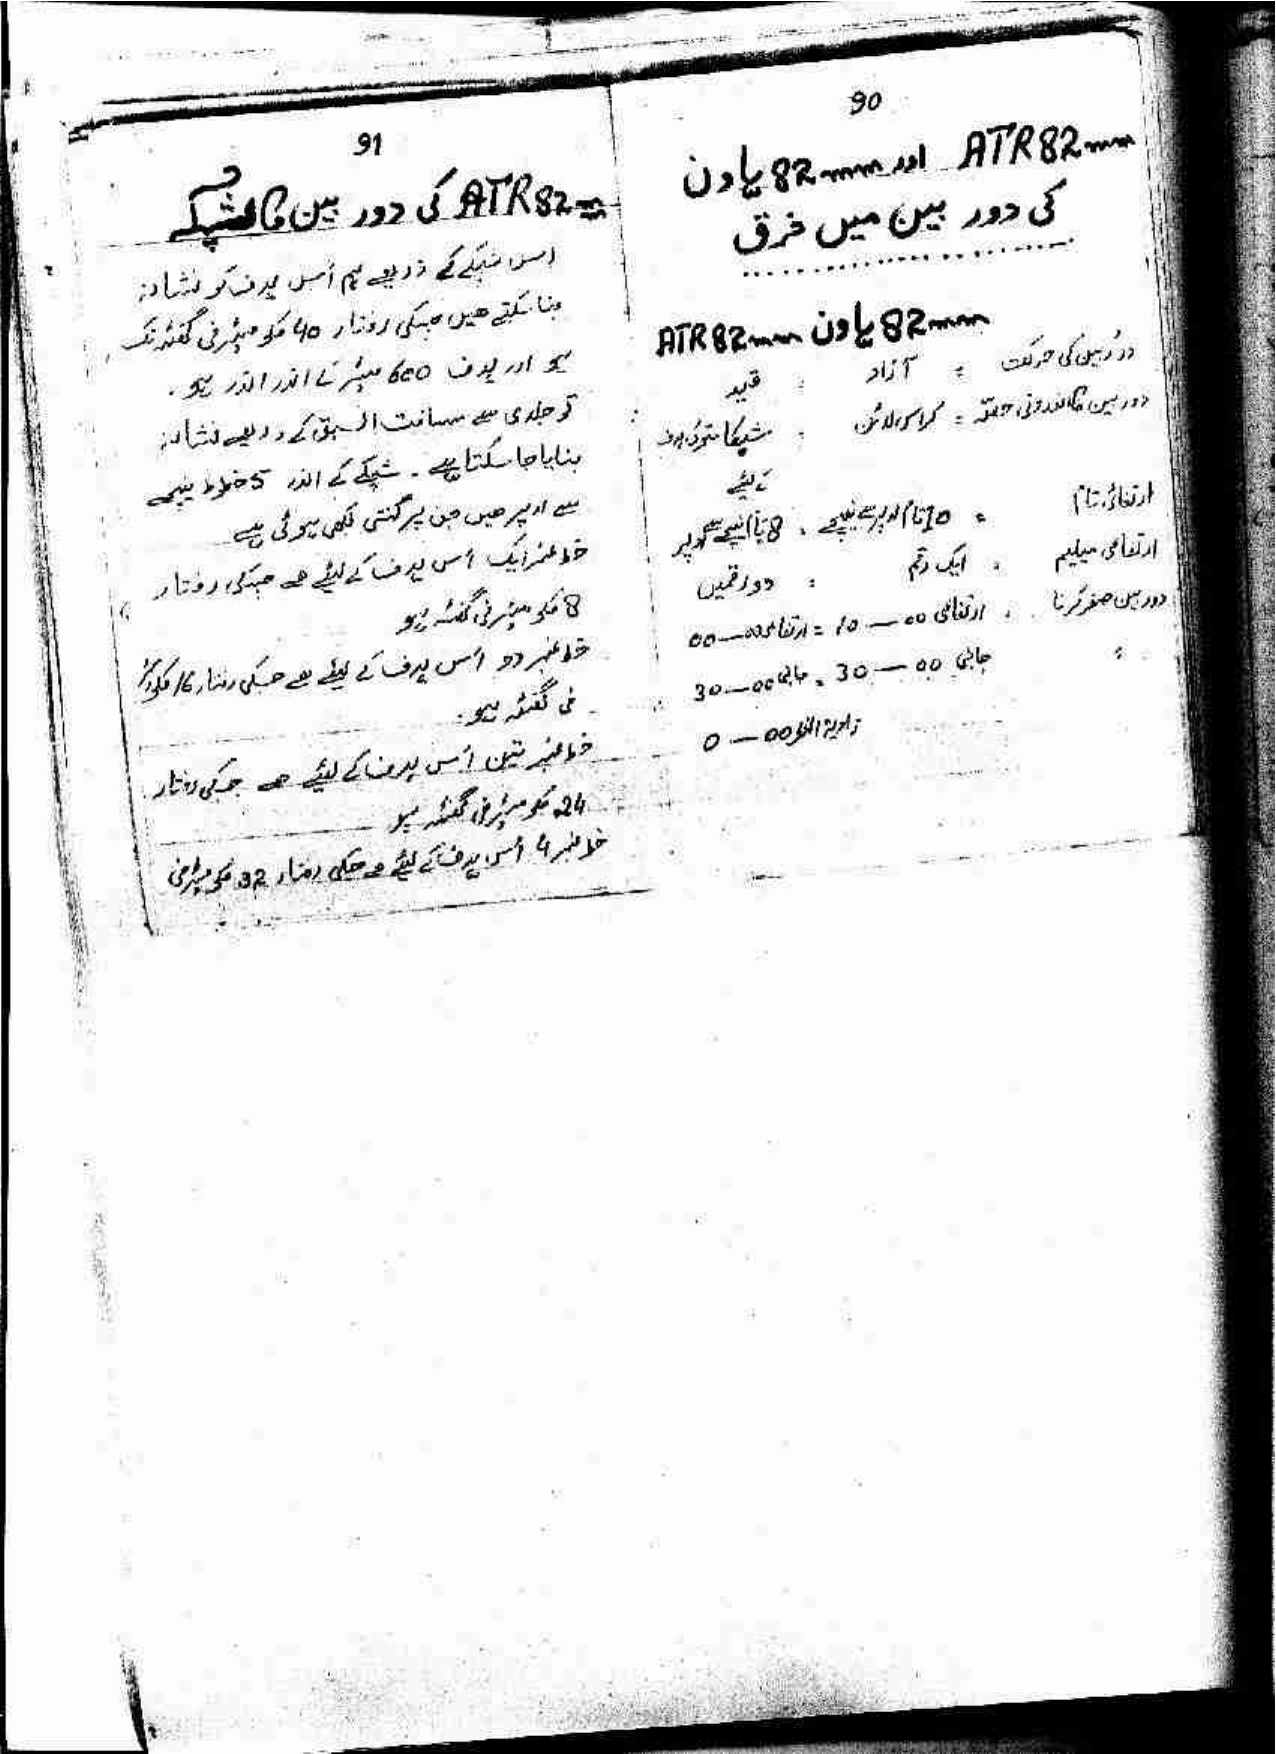 90
ATR82mm اور 82mm ہاون
کی دور بین میں فرق
82mm ہاون ATR82mm
دوربین کی حرکت : آزاد : قید
دوربین کا اندرونی حصّہ = کراس لائن ، شبکا متحرک ہدف
کے لیئے
ارتفاعی = 10 تا 1 اوپر سے نیچے ، 8 تا 1 نیچے سے اوپر
ارتفاعی میلیم ، ایک رقم : دو رقمیں
دوربین صفر کرنا ، ارتفاعی 00—10 = ارتفاعی 00—00
جانبی 00—30 ، جانبی 00—30
زاویۃ 00—0
91
ATR82mm کی دور بین کا شبکہ
اس شبکے کے ذریعے ہم اُس ہدف کو نشانہ
بنا سکتے ھیں جسکی رفتار 40 کلو میٹر فی گھنٹہ تک
ہو اور ہدف 600 میٹر کے اندر اندر ہو۔
تو جلدی سے مسافت السبق کے ذریعے نشانہ
بنایا جا سکتا ہے۔ شبکے کے اندر 5 خطوط نیچے
سے اوپر ھیں جن پر گنتی لکھی ہوئی ہے
خط نمبر ایک اُس ہدف کے لیئے ھے جسکی رفتار
8 کلو میٹر فی گھنٹہ ہو
خط نمبر دو اُس ہدف کے لیئے ھے جسکی رفتار 16 کلو میٹر
فی گھنٹہ ہو۔
خط نمبر تین اُس ہدف کے لیئے ھے جسکی رفتار
24 کلو میٹر فی گھنٹہ ہو
خط نمبر 4 اُس ہدف کے لیئے ھے جسکی رفتار 32 کلو میٹر فی